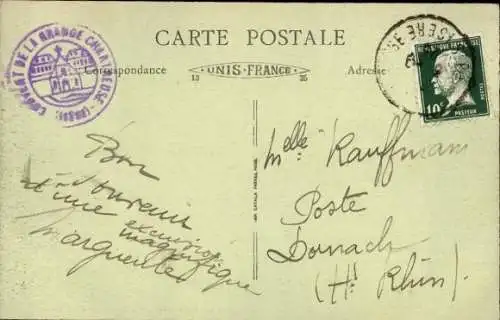 CARTE POSTALE
Correspondance
UNIS-FRANCE
Adresse
13
25
COUVENT DE LA GRANDE CHARTREUSE
ISERE
REPUBLIQUE FRANÇAISE
10c
POSTES
PASTEUR
Bon
souvenir
d'une excursion
magnifique
Marguerite
Melle Kauffmann
Poste
Dornach
(Ht Rhin)